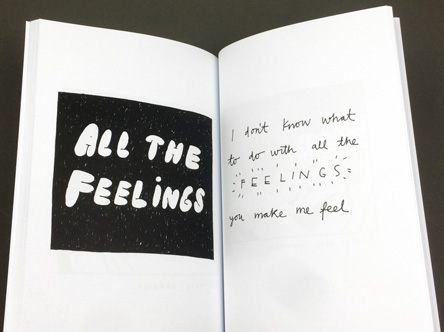 ALL THE
FEELiNGS
I don't know what
to do with all the
FEELINGS
you make me feel